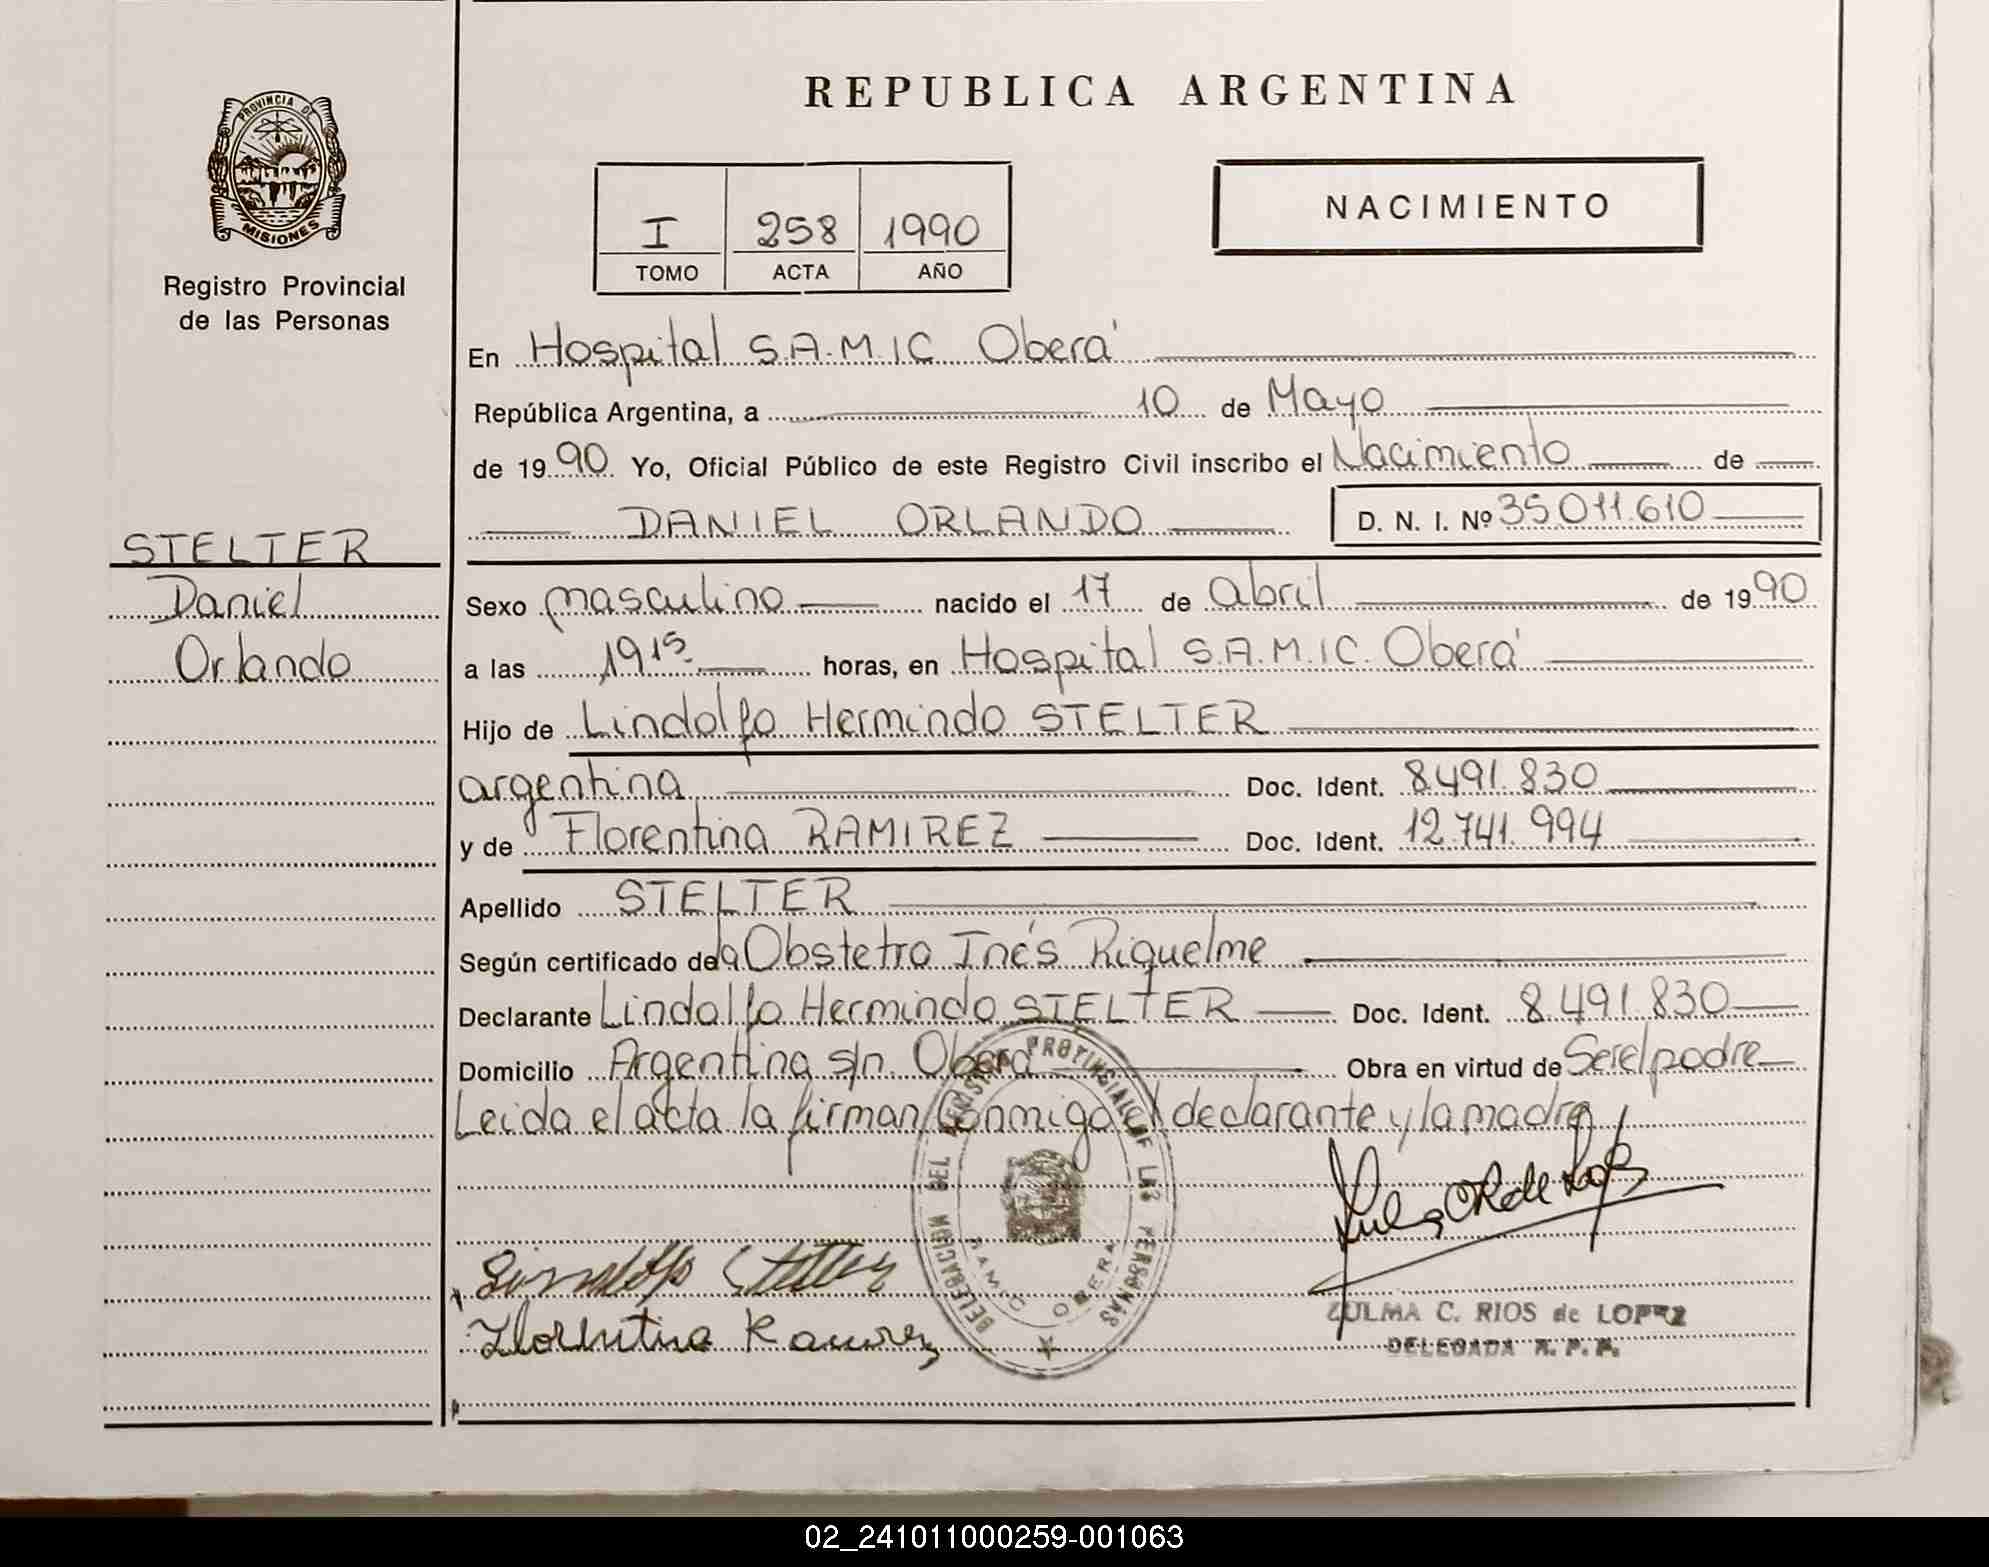 REPUBLICA ARGENTINA
PROVINCIA DE
MISIONES
Registro Provincial
de las Personas
I 258 1990
TOMO ACTA AÑO
NACIMIENTO
En Hospital S.A.M.I.C. Oberá
República Argentina, a 10 de Mayo
de 1990 Yo, Oficial Público de este Registro Civil inscribo el Nacimiento de
DANIEL ORLANDO D. N. I. Nº 35.011.610
STELTER
Daniel
Orlando
Sexo masculino nacido el 17 de abril de 1990
a las 19 15 horas, en Hospital S.A.M.I.C. Oberá
Hijo de Lindolfo Hermindo STELTER
argentina Doc. Ident. 8.491.830
y de Florentina RAMIREZ Doc. Ident. 12.741.994
Apellido STELTER
Según certificado de la Obstetra Inés Riquelme
Declarante Lindolfo Hermindo STELTER Doc. Ident. 8.491.830
Domicilio Argentina s/n. Oberá Obra en virtud de Ser el padre
Leida el acta la firman Conmigo el declarante y la madre
DELEGACION DEL REGISTRO PROVINCIAL DE LAS PERSONAS
SAMIC OBERA
Lindolfo Stelter
Florentina Ramirez
ZULMA C. RIOS de LOPEZ
DELEGADA R. P. P.
02_241011000259-001063